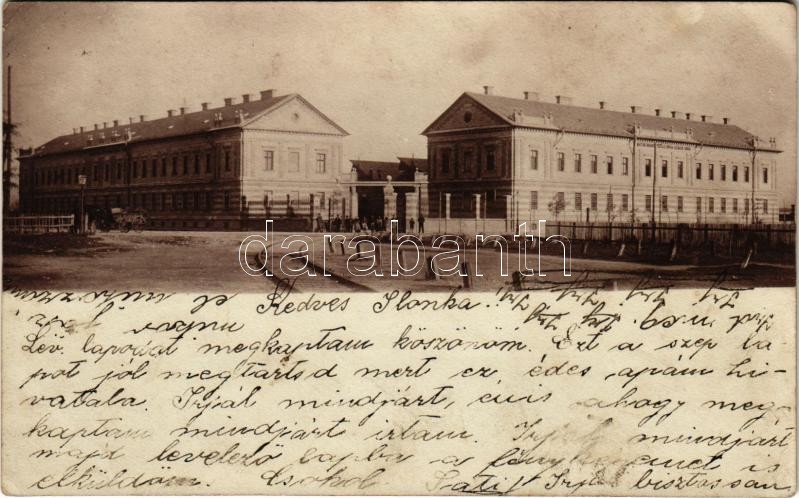 darabanth
Kedves Ilonka!
Lev. lapodat megkaptam köszönöm. Ezt a szep la-
pot jól megtartsd mert ez édes apám hi-
vatala. Irjál mindjárt, én is ahogy meg-
kaptam mindjárt irtam. Irjál mindjárt
majd levelező lapba a fényképemet is
elküldöm. Csokol Irjál bisztossan